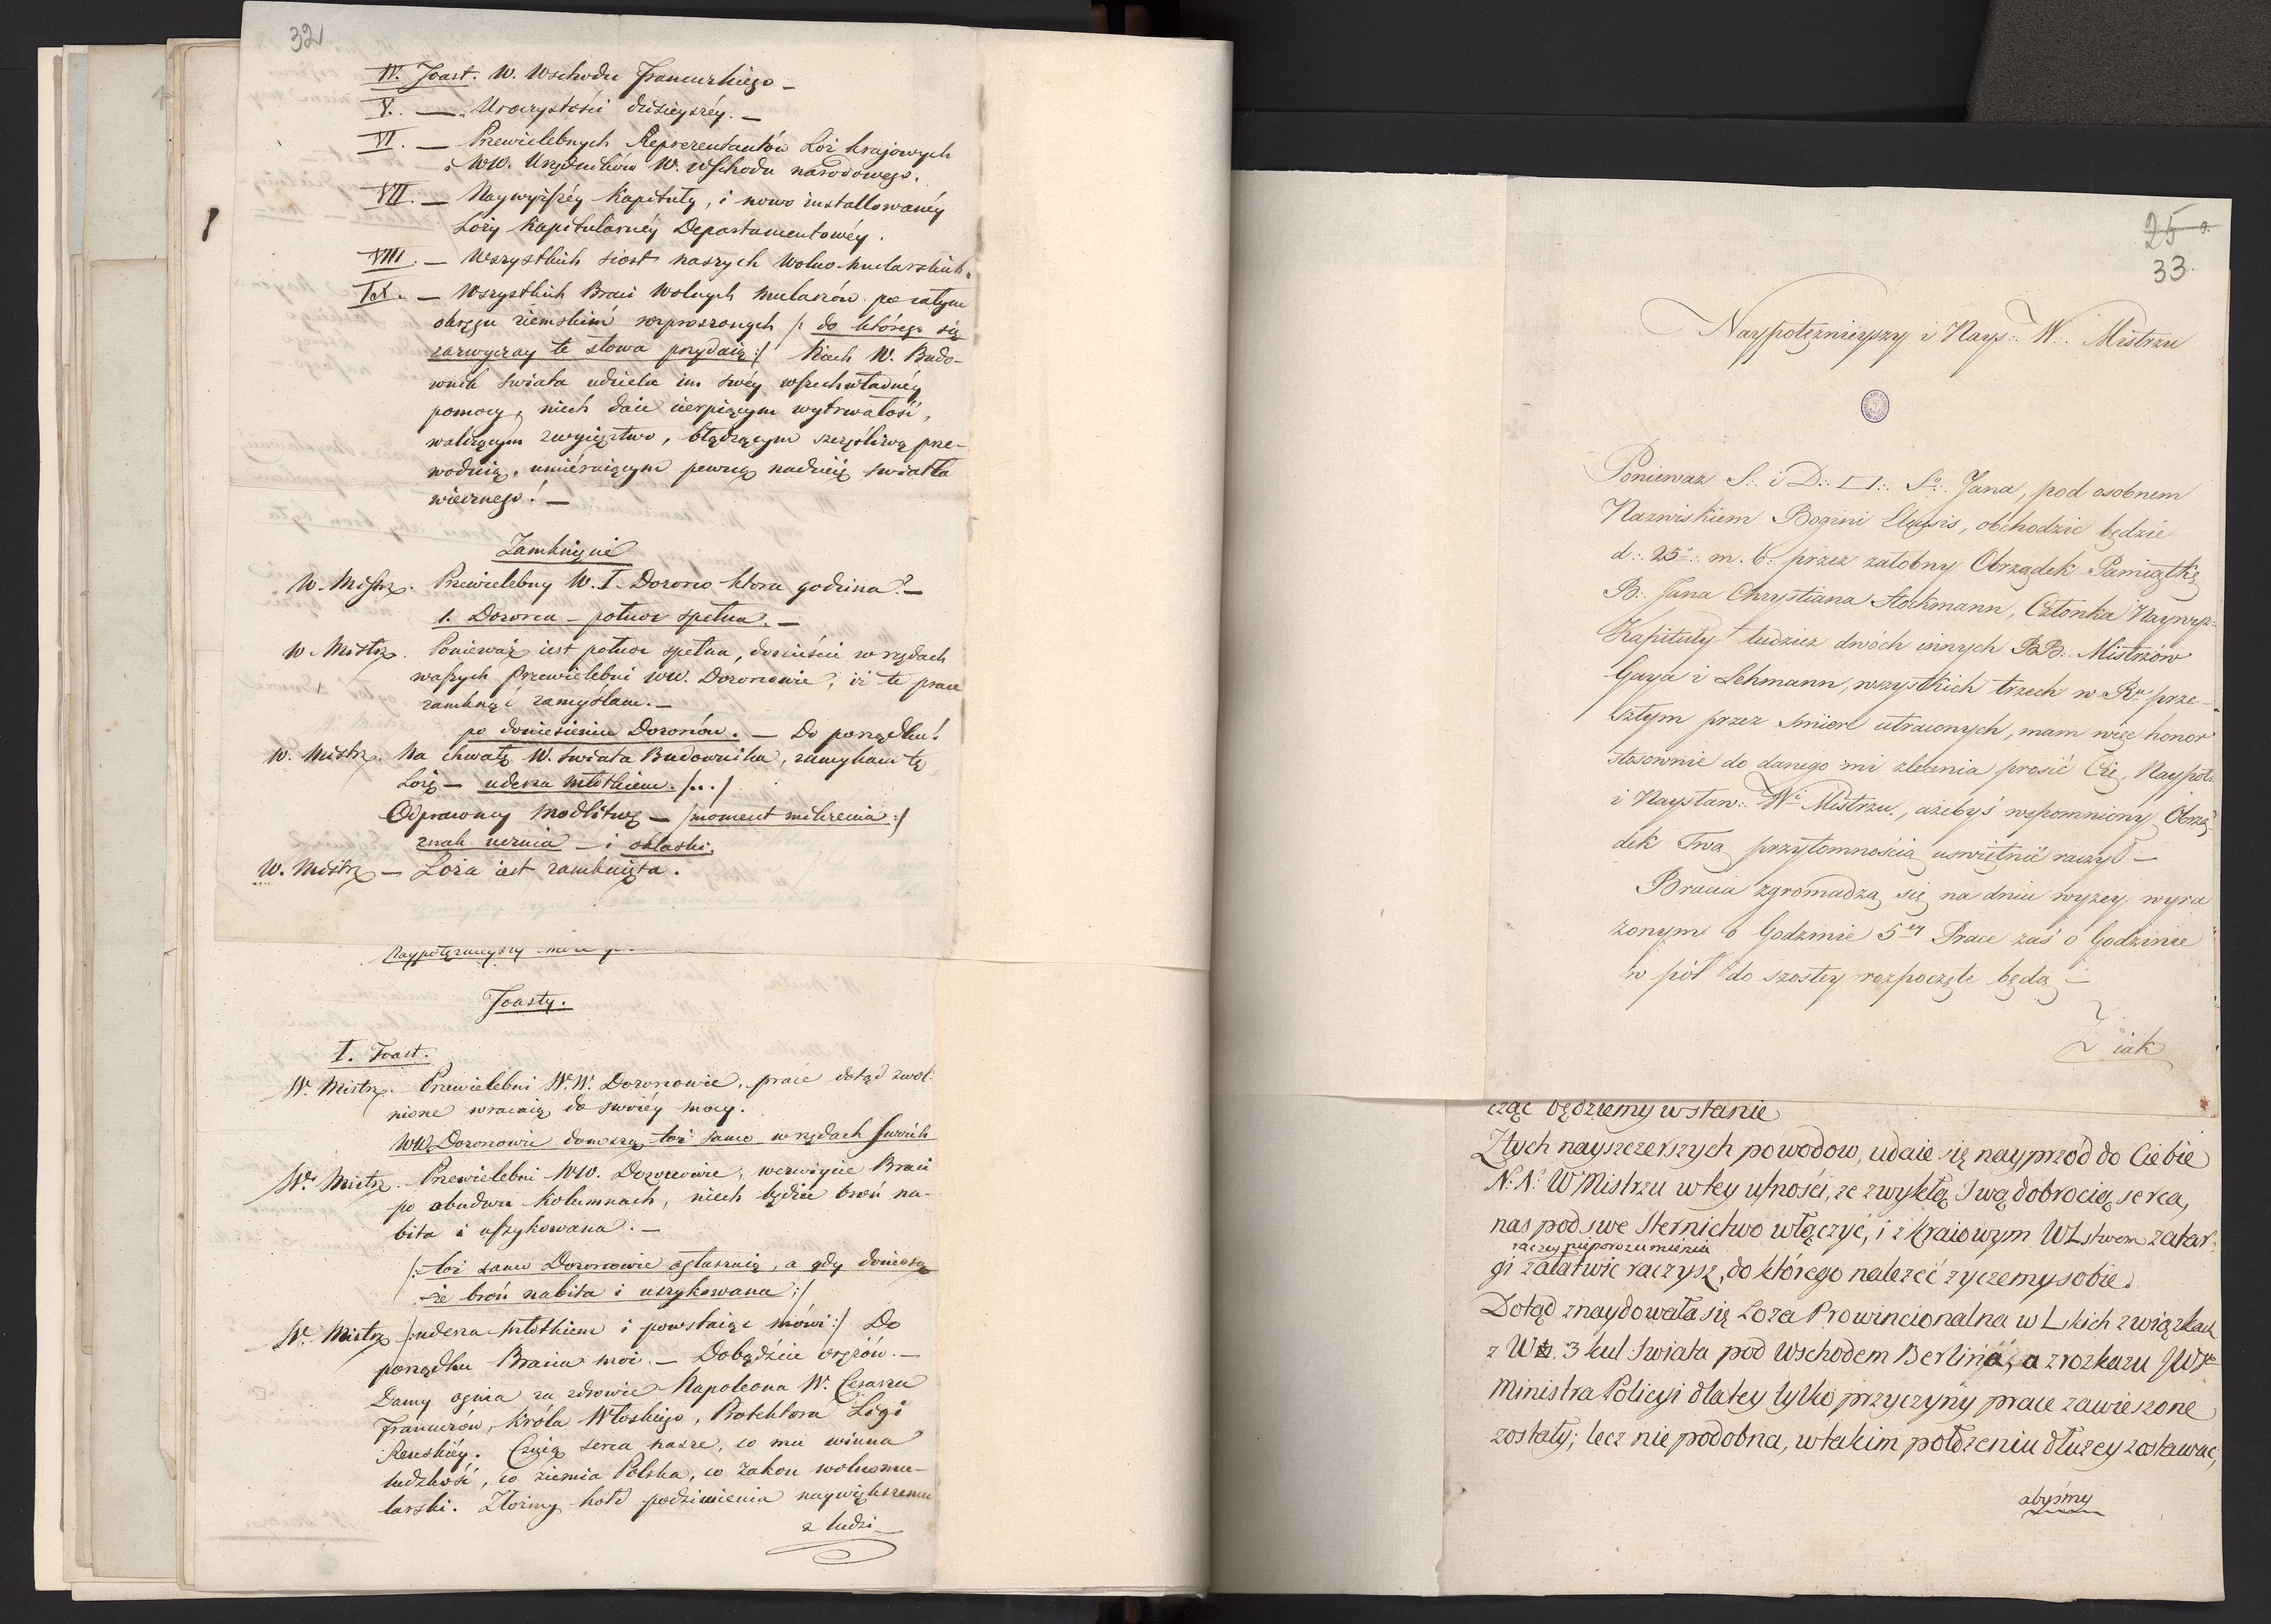 32
IV. Toast. W. Wschodu Francuzkiego –
V. — „ Uroczystości dzisieyszéy. –
VI. — Przewielebnych Reprezentantów Lóż krajowych
i WW. Urzędników W. Wschodu narodowego.
VII. — Naywyższéy Kapituły, i nowo installowanéy
Loży Kapitularnéy Departamentowéy.
VIII. — Wszystkich siost naszych Wolno-mularskich.
IX. — Wszystkich Braci Wolnych mularzów po całym
okręgu ziemskim rozproszonych /: do którego się
zazwyczay te słowa przydaią :/ Niech W. Budo-
wnik świata udziela im swéy wszechwładnéy
pomocy, niech daie cierpiącym wytrwałość,
walczącym zwycięztwo, błądzącym szczęśliwą prze-
wodnią, umieraiącym pewną nadzieię światła
wiecznego! —
Zamknięcie
W. Mistrz. Przewielebny W. I. Dozorco ktora godzina? –
1. Dozorca – połnoc spełna. –
W. Mistrz. Ponieważ iest połnoc spełna, donieście w rzędach
waszych Przewielebni WW. Dozorcowie, iż te prace
zamknąć zamyślam. –
po doniesieniu Dozorców. — Do porządku!
W. Mistrz. Na chwałę W. świata Budownika, zamykam tę
Lożę – uderza młotkiem. /../
Odprawmy modlitwę – /moment milczenia :/
znak ucznia – i oklaski.
W. Mistrz – Loża iest zamknięta.
Naypotężnieyszy
Toasty.
I. Toast.
W. Mistrz. Przewielebni W.W. Dozorcowie, prace dotąd zwol-
nione wracaią do swoiéy mocy.
WW. Dozorcowie donoszą toż samo w rzędach swoich
W. Mistrz. Przewielebni WW. Dozorcowie, wezwiycie Braci
po obudwu kolumnach, niech będzie broń na-
bita i uszykowana. –
/: toż samo Dozorcowie ogłaszaią, a gdy doniosą
że broń nabita i uszykowana :/
W. Mistrz /: uderza młotkiem i powstaiąc mówi :/ Do
porządku Bracia moi. – Dobądźcie orężów. –
Damy ognia za zdrowie Napoleona W. Cesarza
Francuzów, Króla Włoskiego, Protektora Ligi
Renskiéy. Czuią serca nasze, co mu winna
ludzkość, co ziemia Polska, co zakon wolnomu-
larski. Złożmy hołd podziwienia naywiększemu
z ludzi
25
33
Naypotężnieyszy i Nays∴ W∴ Mistrzu
Poniewaz S∴ i D∴ □∴ Sgo∴ Jana, pod osobnem
Nazwiskiem Bogini Eleusis, obchodzic będzie
d∴ 25o∴ m. b. przez załobny Obrządek Pamiątkę
B∴ Jana Chrystiana Stockmann, Członka Naywyz∴
Kapituły tudziez dwóch innych BB∴ Mistrzów
Gaya i Lehmann, wszystkich trzech w Ru prze-
szłym przez smierc utraconych, mam więc honor
stosownie do danego mi zlecenia prosić Cię, Naypot∴
i Naysław∴ Wi Mistrzu, ażebyś wspomniony Obrzą-
dek Twą przytomnością uswietnić raczył –
Bracia zgromadzą się na dniu wyzey wyra
zonym o Godzinie 5ey Prace zaś o Godzinie
w pół do szostey rozpoczęte będą –
Ziak
cząc będziemy wstanie
Ztych nayszczerszych powodow, udaie się nayprzód do Ciebie
N∴ N∴ W Mistrzu wtey ufności, ze zwykłą Twą dobrocią serca,
nas pod swe Sternictwo włączyć, i z Kraiowym WLstwem zatar-
raczey nieporozumienia
gi załatwic raczysz, do którego nalezeć zyczemy sobie.
Dotąd znaydowała się Loza Prowincionalna w Lskich związkach
z W 3 kul Swiata pod Wschodem Berlina, a z rozkazu JW
Ministra Policyi dlatey tylko przyczyny prace zawieszone
zostały; lecz nie podobna, wtakim połozeniu dłuzey zostawac,
abyśmy